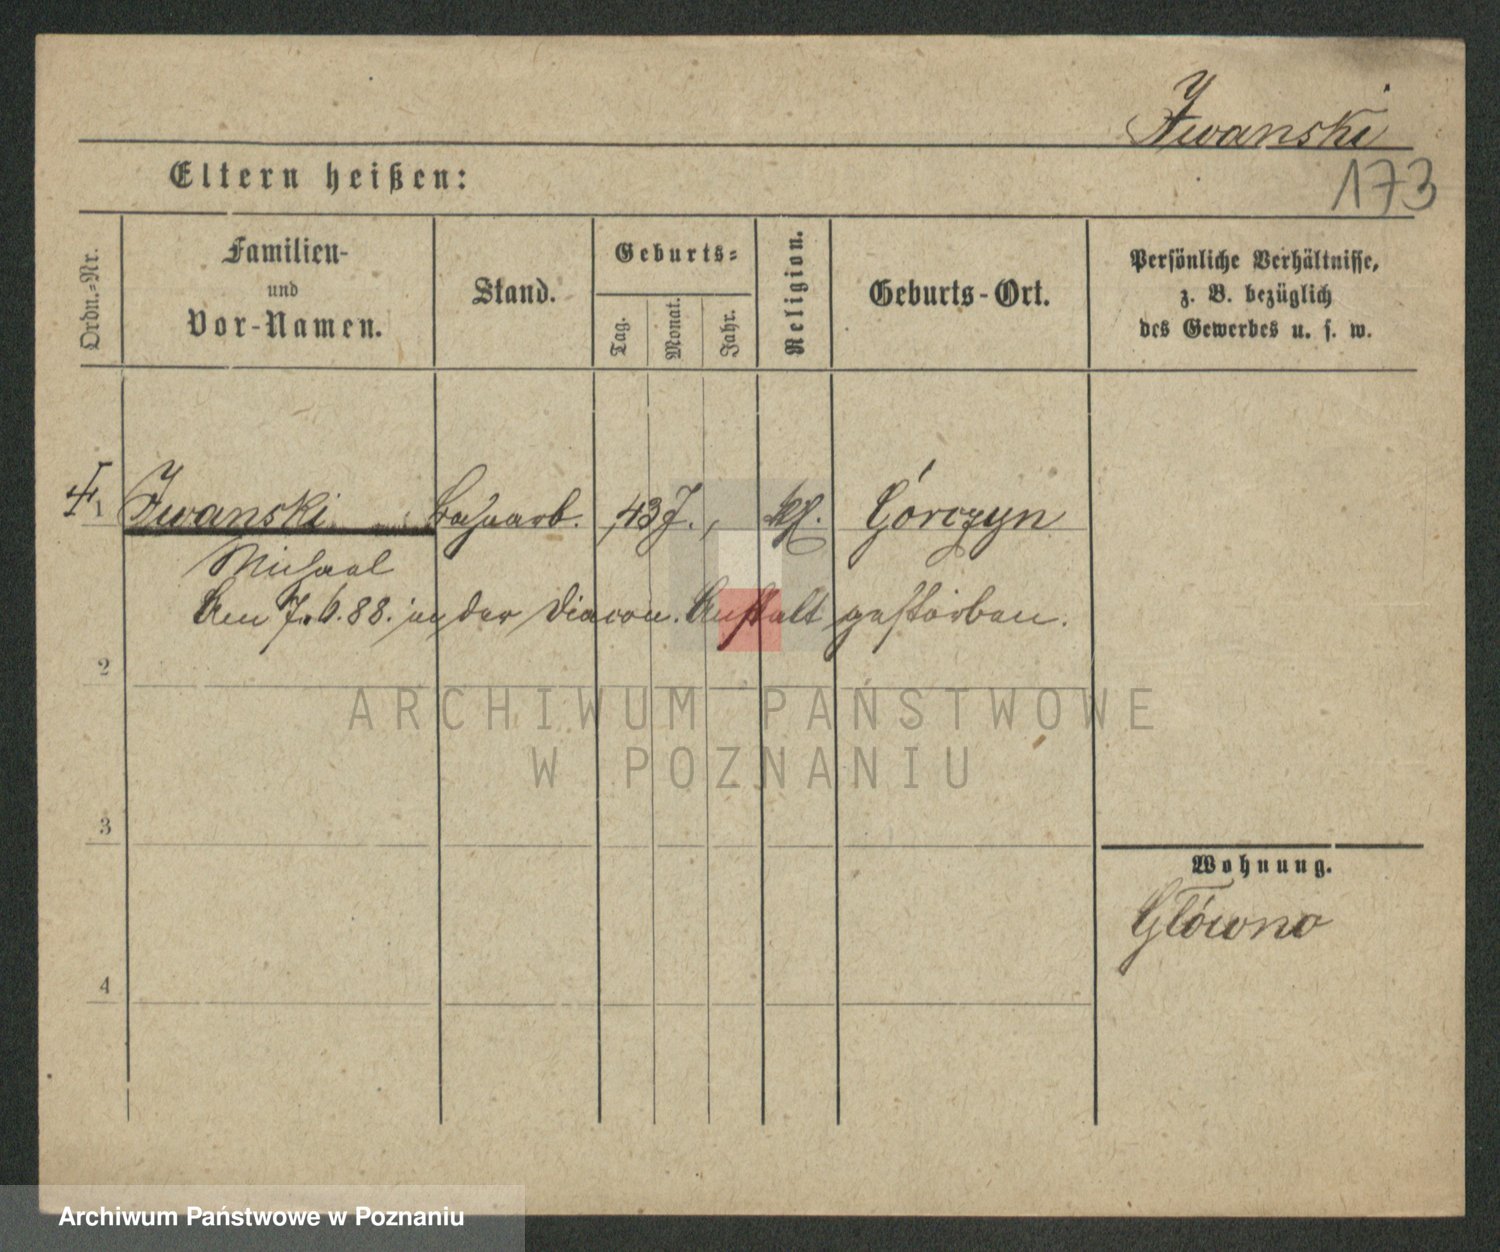 Iwanski
173
Eltern heißen:
Ordn.-Nr.
Familien-
und
Vor-Namen.
Stand.
Geburts-
Tag.
Monat.
Jahr.
Religion.
Geburts-Ort.
Persönliche Verhältnisse,
z. B. bezüglich
des Gewerbes u. s. w.
1 Iwanski Bahnarb. 43 J. kth. Górczyn
Michael
Am 7.6.88. in der Diacon. Anstalt gestorben.
2
ARCHIWUM PAŃSTWOWE
W POZNANIU
3
Wohnung.
Główno
4
Archiwum Państwowe w Poznaniu